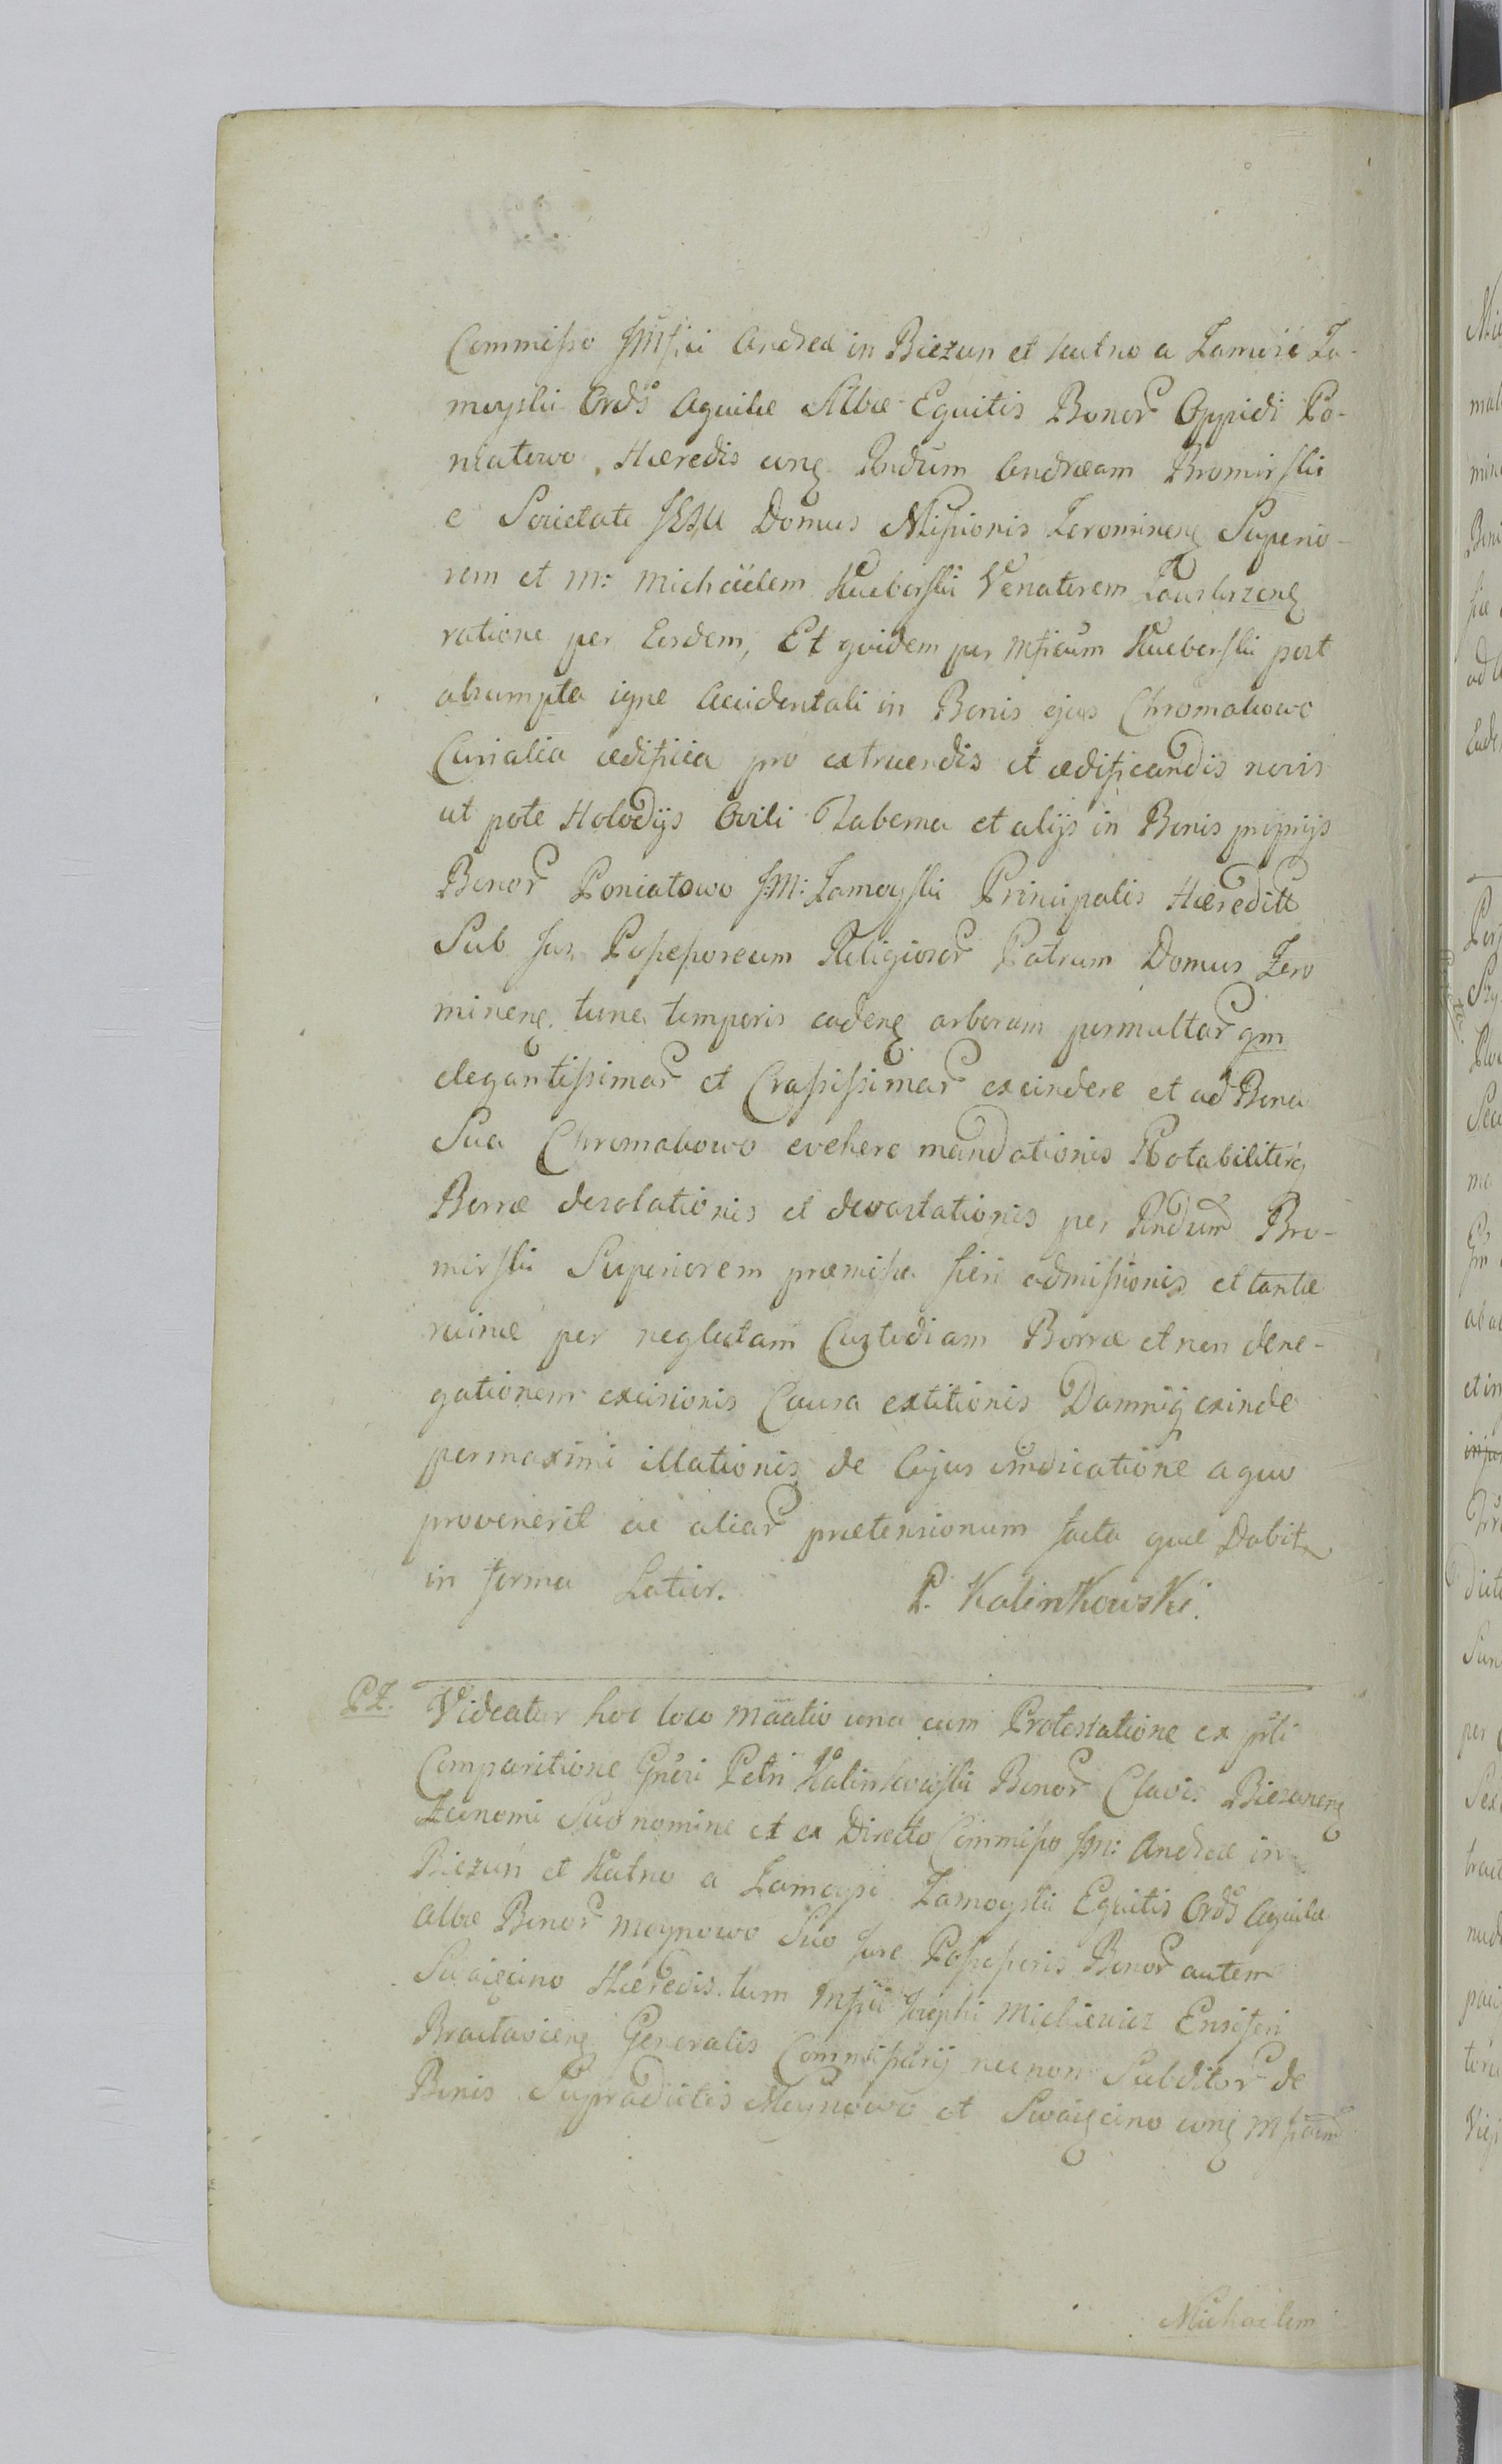 Commisso JMfici Andreæ in Biezun et Kutno a Zamosc Za-
moyski Ordīs Aquilæ Albæ Equitis Bonor Oppidi Po-
niatowo Hæredis conq Rndum Andræam Bromirski
e Societate JESU Domus Missionis Zerominenq Superio-
rem et M: Michäelem Kueborski Venatorem Zauskrzenq
ratione per Eosdem, Et quidem per Mficum Kueborski post
absumpta igne Accidentali in Bonis ejus Chromakowo
Curialia ædificia pro extruendis et ædificandis novis
ut pote Holodÿs Ovili Taberna et alÿs in Bonis proprÿs
Bonor Poniatowo J:M: Zamoyski Principalis Hæredit
Sub Jus Possessoreum Religiosor Patrum Domus Zero
minenq tunc temporis cadenq arborum permultar qm
elegantissimar et Crassissimar excindere et ad Bona
Sua Chromakowo evehere mandationis Notabiliterq
Borræ desolationis et devastationis per Rndum Bro-
mirski Superiorem præmissa fieri admissionis et tantæ
ruinæ per neglectam Custodiam Borræ et non dene-
gationem excisionis Causa extitionis Damnÿq exinde
permaximi illationis de Cujus vindicatione a quo
provenerit ac aliar prætensionum facta quæ Dabit
in forma Latior. P. Kalinkowski.
PZ. Videatur hoc loco Mäatio una cum Protestatione ex prti
Comparitione Gnrsi Petri Kalinkowski Bonor Clavis Biezunenq
Æconomi Suo nomine et ex Directo Commisso JM: Andreæ in
Biezuń et Kutno a Zamoysc Zamoyski Equitis Ordīs Aquilæ
Albæ Bonor Moynowo Suo Jure Possessoris Bonor autem
Swoięcino Hæredis tum Mfici Josephi Mickiewicz Ensiferi
Bractavienq Generalis Commissarÿ necnon Subditor de
Bonis Supradictis Moynowo et Swoięcino conq Mficum
Michaelem